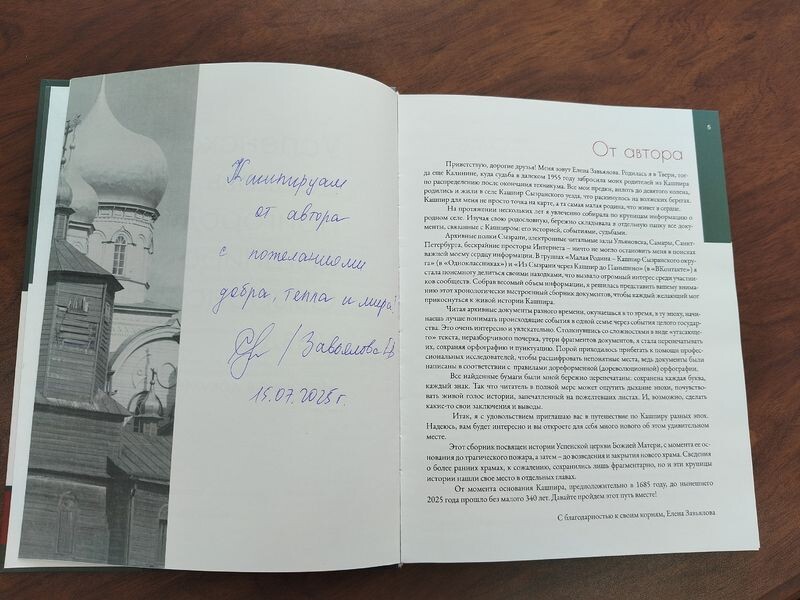 Кашпирцам
от автора
с пожеланиями
добра, тепла и мира!
Завьялова Е.В.
15.07.2025 г.
5
От автора
Приветствую, дорогие друзья! Меня зовут Елена Завьялова. Родилась я в Твери, тог-
да еще Калинине, куда судьба в далеком 1955 году забросила моих родителей из Кашпира
по распределению после окончания техникума. Все мои предки, вплоть до девятого колена,
родились и жили в селе Кашпир Сызранского уезда, что раскинулось на волжских берегах.
Кашпир для меня не просто точка на карте, а та самая малая родина, что живет в сердце.
На протяжении нескольких лет я увлеченно собирала по крупицам информацию о
родном селе. Изучая свою родословную, бережно складывала в отдельную папку все доку-
менты, связанные с Кашпиром: его историей, событиями, судьбами.
Архивные полки Сызрани, электронные читальные залы Ульяновска, Самары, Санкт-
Петербурга, бескрайние просторы Интернета – ничто не могло остановить меня в поисках
важной моему сердцу информации. В группах «Малая Родина – Кашпир Сызранского окру-
га» (в «Одноклассниках») и «Из Сызрани через Кашпир до Паньшино» (в «ВКонтакте») я
стала понемногу делиться своими находками, что вызвало огромный интерес среди участни-
ков сообществ. Собрав весомый объем информации, я решилась представить вашему внима-
нию этот хронологически выстроенный сборник документов, чтобы каждый желающий мог
прикоснуться к живой истории Кашпира.
Читая архивные документы разного времени, окунаешься в то время, в ту эпоху, начи-
наешь лучше понимать происходящие события в одной семье через события целого государ-
ства. Это очень интересно и увлекательно. Столкнувшись со сложностями в виде «угасающе-
го» текста, неразборчивого почерка, утери фрагментов документов, я стала перепечатывать
их, сохраняя орфографию и пунктуацию. Порой приходилось прибегать к помощи профес-
сиональных исследователей, чтобы расшифровать непонятные места, ведь документы были
написаны в соответствии с правилами дореформенной (дореволюционной) орфографии.
Все найденные бумаги были мной бережно перепечатаны: сохранена каждая буква,
каждый знак. Так что читатель в полной мере может ощутить дыхание эпохи, почувство-
вать живой голос истории, запечатленный на пожелтевших листах. И, возможно, сделать
какие-то свои заключения и выводы.
Итак, я с удовольствием приглашаю вас в путешествие по Кашпиру разных эпох.
Надеюсь, вам будет интересно и вы откроете для себя много нового об этом удивительном
месте.
Этот сборник посвящен истории Успенской церкви Божией Матери, с момента ее ос-
нования до трагического пожара, а затем – до возведения и закрытия нового храма. Сведения
о более ранних храмах, к сожалению, сохранились лишь фрагментарно, но и эти крупицы
истории нашли свое место в отдельных главах.
От момента основания Кашпира, предположительно в 1685 году, до нынешнего
2025 года прошло без малого 340 лет. Давайте пройдем этот путь вместе!
С благодарностью к своим корням, Елена Завьялова